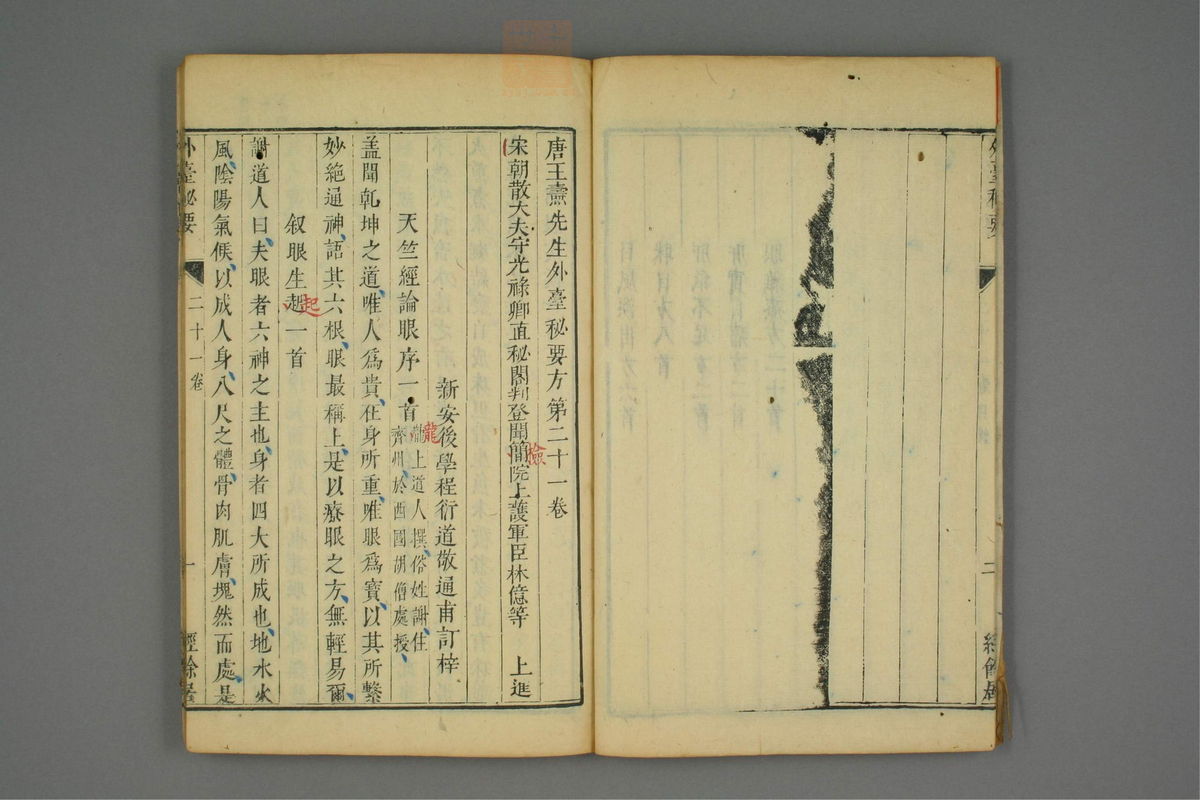 外臺秘要
二
經餘居
唐王燾先生外臺秘要方第二十一卷
宋朝散大夫守光祿卿直秘閣判登聞簡院上護軍臣林億等 上進
檢
新安後學程衍道敬通甫訂梓
天竺經論眼序一首
隴上道人撰俗姓謝住
齊州於西國胡僧處授
蓋聞乹坤之道唯人為貴在身所重唯眼為寶以其所繫
妙絶通神語其六根眼最稱上是以療眼之方無輕易爾
叙眼生起一首
起
謝道人曰夫眼者六神之主也身者四大所成也地水火
風陰陽氣候以成人身八尺之體骨肉肌膚塊然而處是
外臺秘要
二十一卷
一
經餘居